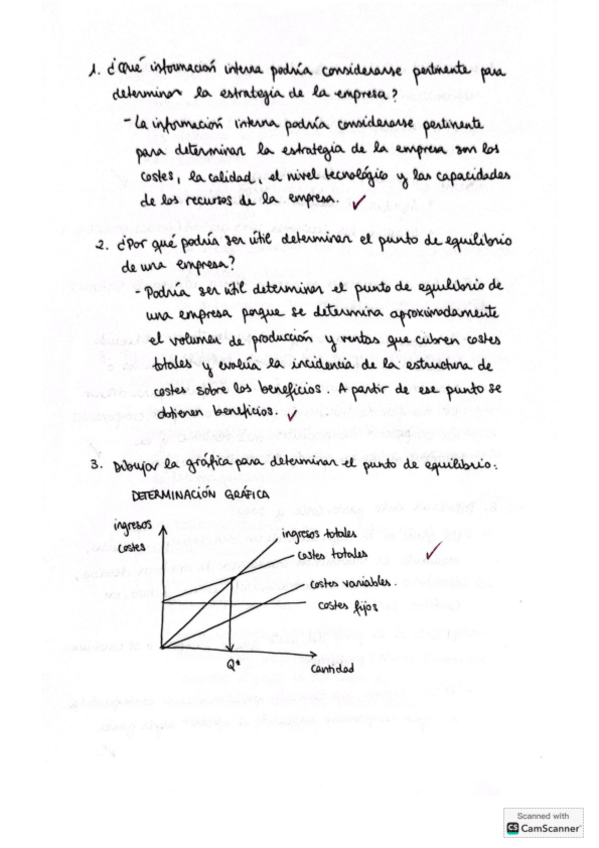 1. ¿Qué información interna podría considerarse pertinente para
determinar la estrategia de la empresa?
- La información interna podría considerarse pertinente
para determinar la estrategia de la empresa son los
costes, la calidad, el nivel tecnológico y las capacidades
de los recursos de la empresa.
2. ¿Por qué podría ser útil determinar el punto de equilibrio
de una empresa?
- Podría ser útil determinar el punto de equilibrio de
una empresa porque se determina aproximadamente
el volumen de producción y ventas que cubren costes
totales y evalúa la incidencia de la estructura de
costes sobre los beneficios. A partir de ese punto se
obtienen beneficios.
3. Dibujar la gráfica para determinar el punto de equilibrio:
DETERMINACIÓN GRÁFICA
ingresos
costes
ingresos totales
costes totales
costes variables.
costes fijos
Q*
cantidad
Scanned with
CS CamScanner